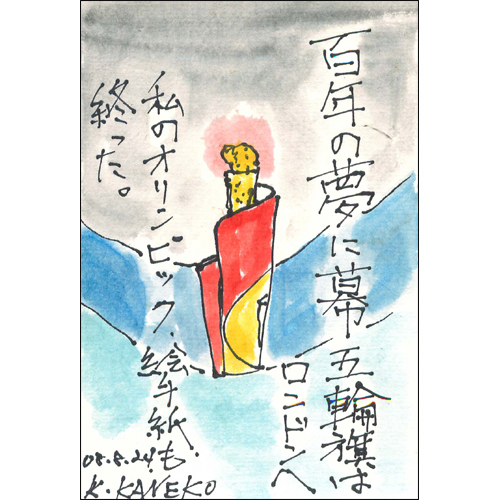 百年の夢に幕五輪旗は
ロンドンへ
私のオリンピック、絵手紙も
終った。
08.8.24
K.KANEKO